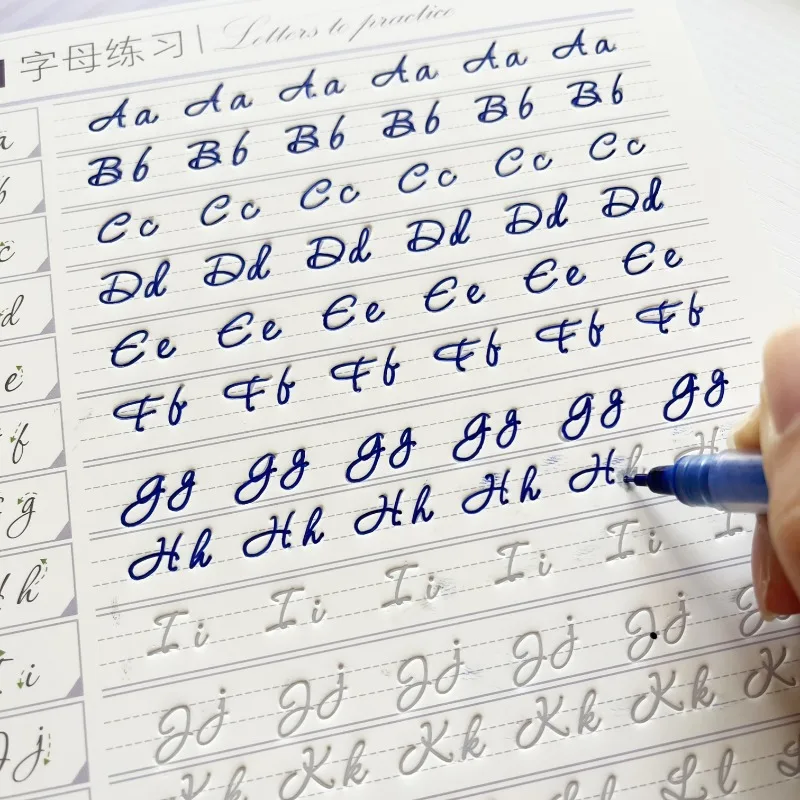 字母练习 | Letters to practice
a
Aa Aa Aa Aa Aa Aa
b
Bb Bb Bb Bb Bb Bb
c
Cc Cc Cc Cc Cc Cc
d
Dd Dd Dd Dd Dd Dd
e
Ee Ee Ee Ee Ee Ee
f
Ff Ff Ff Ff Ff Ff
g
Gg Gg Gg Gg Gg Gg
h
Hh Hh Hh Hh Hh H
i
Ii Ii Ii Ii Ii I
j
Jj Jj Jj Jj Jj J
Kk Kk Kk Kk Kk K
Ll